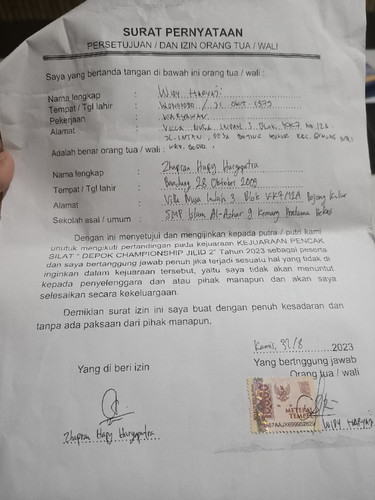 SURAT PERNYATAAN
PERSETUJUAN / DAN IZIN ORANG TUA / WALI
Saya yang bertanda tangan di bawah ini orang tua / wali :
Nama lengkap :
Tempat / Tgl lahir : WONOSOBO / 1975
Pekerjaan : KARYAWAN
Alamat : VILLA NUSA INDAH 3 BLOK
Adalah benar orang tua / wali :
Nama lengkap : Zhafran Hapy Haryaputra
Tempat / Tgl lahir : Bandung 28 Oktober 2009
Alamat : Villa Nusa Indah 3 Blok Bojong Kulur
Sekolah asal / umum : SMP Islam Al-Azhar 9 Kemang Pratama Bekasi
Dengan ini menyetujui dan mengijinkan kepada putra / putri kami
unutuk mengikuti pertandingan pada kejuaraan KEJUARAAN PENCAK
SILAT " DEPOK CHAMPIONSHIP JILID 2" Tahun 2023 sebagai peserta
dan saya bertanggung jawab penuh jika terjadi sesuatu hal yang tidak di
inginkan dalam kejuaraan tersebut, yaitu saya tidak akan menuntut
kepada penyelenggara dan atau pihak manapun dan akan saya
selesaikan secara kekeluargaan.
Demiklan surat izin ini saya buat dengan penuh kesadaran dan
tanpa ada paksaan dari pihak manapun.
Kamis, 31/8 2023
Yang di beri izin
Yang bertnggung jawab
Orang tua / wali
10000
METERAI
TEMPEL
Zhafran Hapy Haryaputra